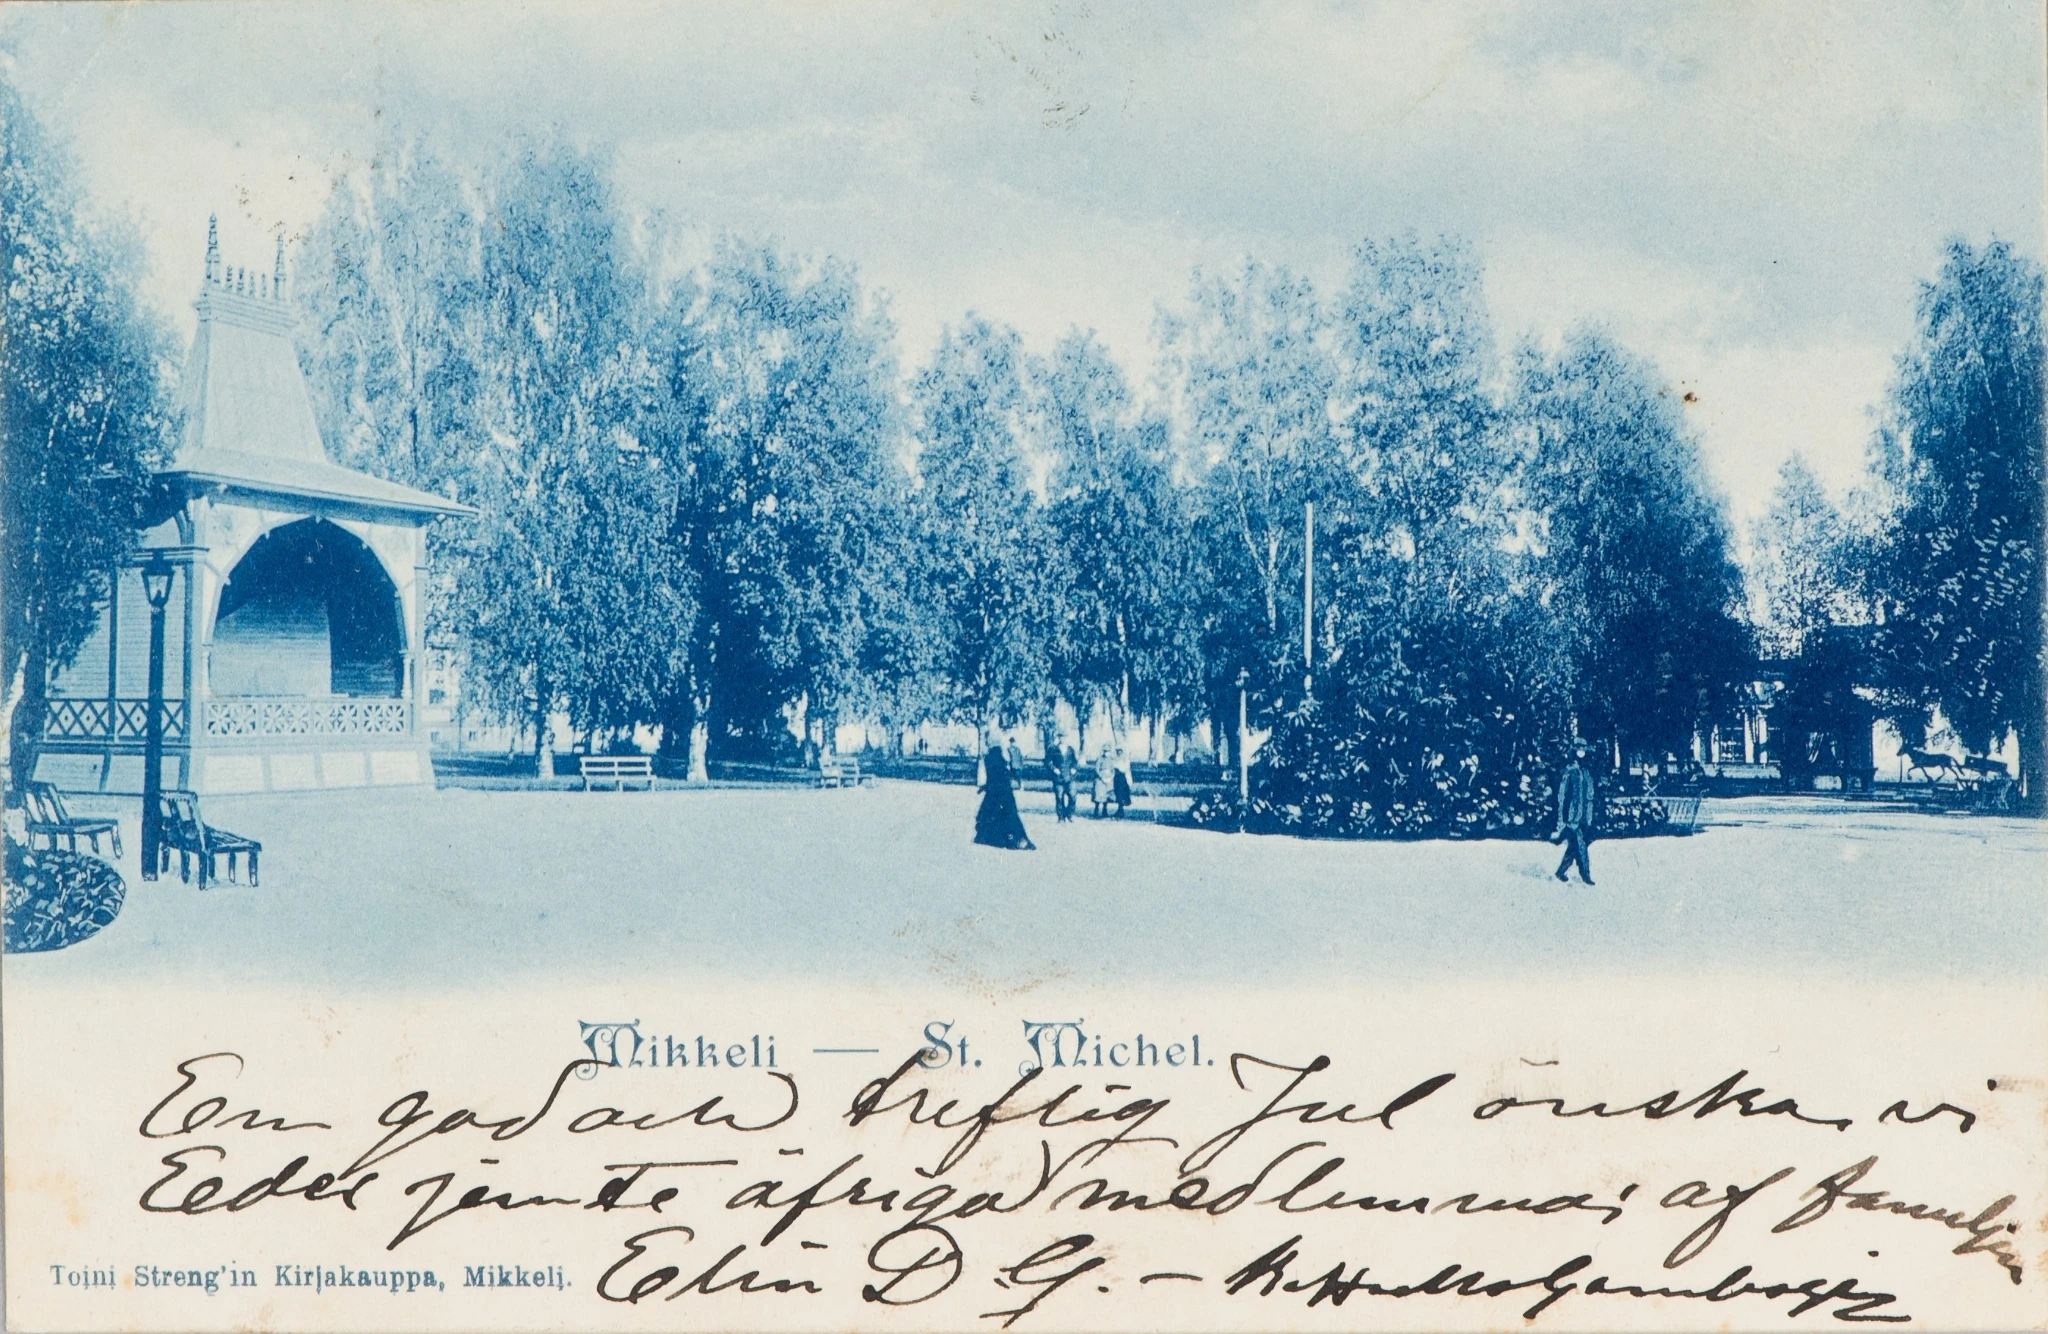 Mikkeli — St. Michel.
En god och treflig Jul önska vi
Eder jemte öfriga medlemmar af familjen
Elin D G. —
Toini Streng'in Kirjakauppa, Mikkeli.